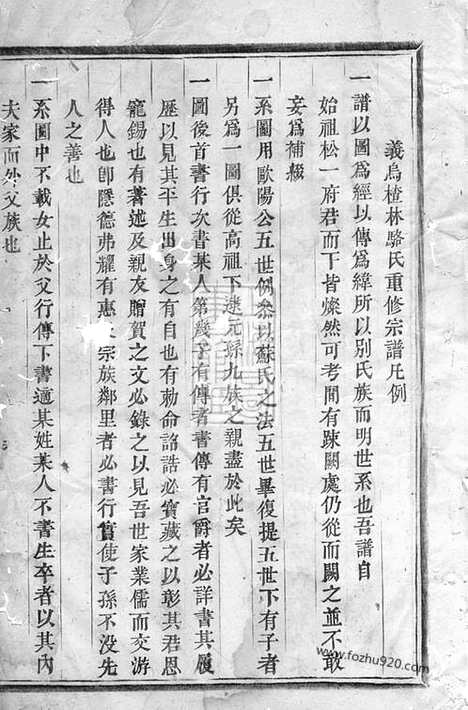 義烏楂林駱氏重修宗譜凡例
一譜以圖為經以傳為緯所以別氏族而明世系也吾譜自
始祖松一府君而下皆燦然可考間有踈闕處仍從而闕之並不敢
妄為補綴
一系圖用歐陽公五世例叅以蘇氏之法五世畢復提五世下有子者
另為一圖俱從高祖下逮元孫九族之親盡於此矣
一圖後首書行次書某人第幾子有傳者書傳有官爵者必詳書其履
歷以見其平生出身之有自也有勅命誥誥必寳藏之以彰其君恩
寵錫也有著述及親友贈賀之文必錄之以見吾世家業儒而交游
得人也卽隱德弗耀有惠 宗族鄰里者必書行實使子孫不没先
人之善也
一系圖中不載女止於父行傳下書適某姓某人不書生卒者以其内
夫家而外父族也
www.fozhu920.com